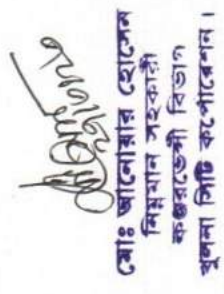 মোঃ আনোয়ার হোসেন
নিম্নমান সহকারী
কঞ্জারভেন্সী বিভাগ
খুলনা সিটি কর্পোরেশন।